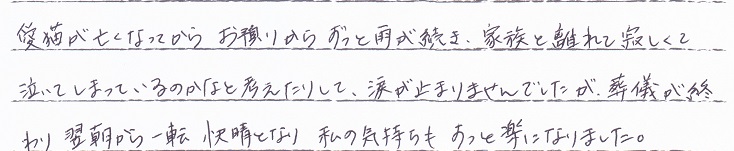 愛猫が亡くなってから お預りから ずっと雨が続き、家族と離れて寂しくて
泣いてしまっているのかなと考えたりして、涙が止まりませんでしたが、葬儀が終
わり 翌朝から一転 快晴となり 私の気持ちも ずっと楽になりました。